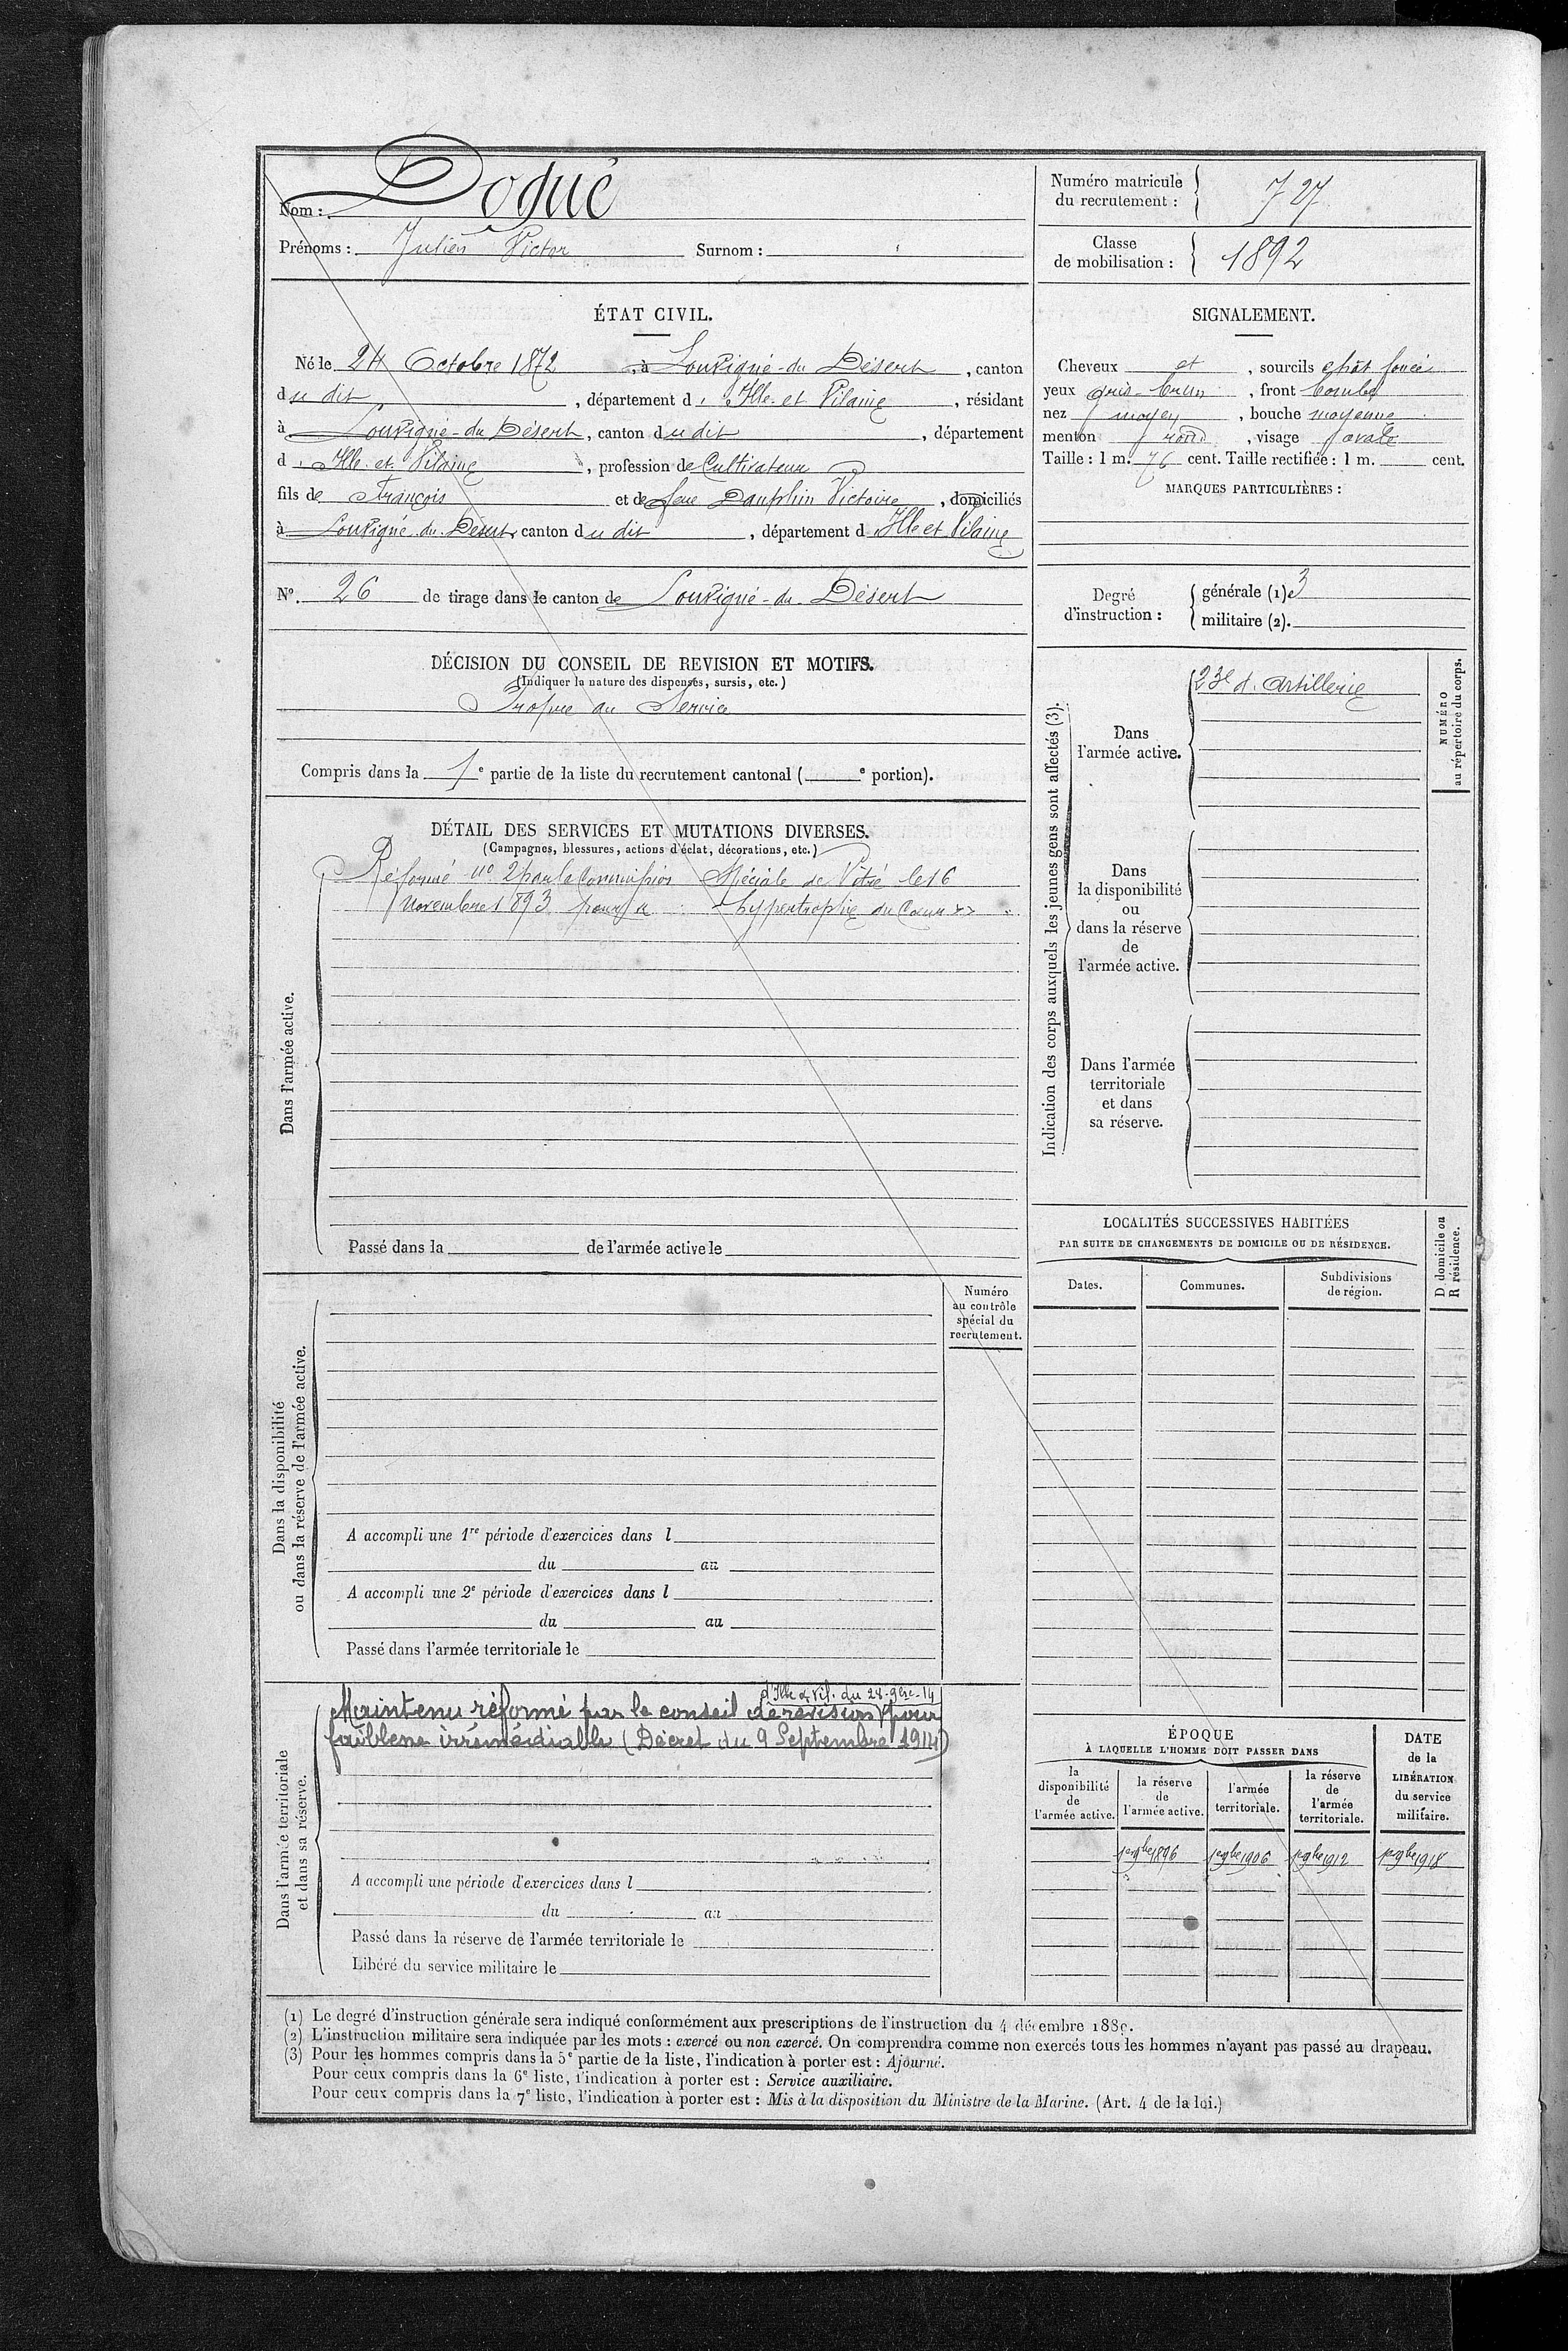 Nom : Dogué
Prénoms : Julien Victor Surnom :
Numéro matricule du recrutement : 727
Classe de mobilisation : 1892
ÉTAT CIVIL.
Né le 24 Octobre 1872 à Louvigné-du Désert, canton
du dit, département d'Ille-et Vilaine, résidant
à Louvigné-du Désert, canton du dit, département
d'Ille-et Vilaine, profession de Cultivateur
fils de François et de feue Dauphin Victoire, domiciliés
à Louvigné-du-Désert canton du dit, département d'Ille et Vilaine
No. 26 de tirage dans le canton de Louvigné-du-Désert
SIGNALEMENT.
Cheveux et, sourcils chât foncés
yeux gris-brun, front bombé
nez moyen, bouche moyenne
menton rond, visage ovale
Taille : 1 m. 76 cent. Taille rectifiée : 1 m. cent.
MARQUES PARTICULIÈRES :
Degré d'instruction :
générale (1) 3
militaire (2).
DÉCISION DU CONSEIL DE REVISION ET MOTIFS.
(Indiquer la nature des dispenses, sursis, etc.)
Propre au Service
Compris dans la 1e partie de la liste du recrutement cantonal ( e portion).
DÉTAIL DES SERVICES ET MUTATIONS DIVERSES.
(Campagnes, blessures, actions d'éclat, décorations, etc.)
Dans l'armée active.
Réformé no 2 par la Commission Spéciale de Vitré le 16
Novembre 1893 pour « hypertrophie du Coeur »
Passé dans la de l'armée active le
Indication des corps auxquels les jeunes gens sont affectés (3).
Dans
l'armée active.
23e d'Artillerie
Dans
la disponibilité
ou
dans la réserve
de
l'armée active.
Dans l'armée
territoriale
et dans
sa réserve.
NUMÉRO
au répertoire du corps.
LOCALITÉS SUCCESSIVES HABITÉES
PAR SUITE DE CHANGEMENTS DE DOMICILE OU DE RÉSIDENCE.
Dates. Communes. Subdivisions de région.
D domicile ou
R résidence.
Dans la disponibilité
ou dans la réserve de l'armée active.
Numéro
au contrôle
spécial du
recrutement.
A accompli une 1re période d'exercices dans l
du au
A accompli une 2e période d'exercices dans l
du au
Passé dans l'armée territoriale le
Dans l'armée territoriale
et dans sa réserve.
d'Ille & Vil. du 28-9bre-14
Maintenu réformé par le conseil de révision pour
faiblesse irrémédiable (Décret du 9 Septembre 1914)
A accompli une période d'exercices dans l
du au
Passé dans la réserve de l'armée territoriale le
Libéré du service militaire le
ÉPOQUE
À LAQUELLE L'HOMME DOIT PASSER DANS
la disponibilité de l'armée active.
la réserve de l'armée active.
l'armée territoriale.
la réserve de l'armée territoriale.
DATE
de la
LIBÉRATION
du service
militaire.
1er 9bre 1896 1er 9bre 1906 1er 9bre 1912 1er 9bre 1918
(1) Le degré d'instruction générale sera indiqué conformément aux prescriptions de l'instruction du 4 décembre 1889.
(2) L'instruction militaire sera indiquée par les mots : exercé ou non exercé. On comprendra comme non exercés tous les hommes n'ayant pas passé au drapeau.
(3) Pour les hommes compris dans la 5e partie de la liste, l'indication à porter est : Ajourné.
Pour ceux compris dans la 6e liste, l'indication à porter est : Service auxiliaire.
Pour ceux compris dans la 7e liste, l'indication à porter est : Mis à la disposition du Ministre de la Marine. (Art. 4 de la loi.)